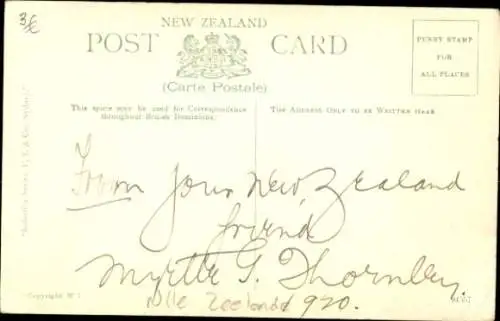 3€
NEW ZEALAND
POST CARD
(Carte Postale)
PENNY STAMP
FOR
ALL PLACES
This space may be used for Correspondence
throughout British Dominions.
The Address Only to be Written Here
From Your New Zealand
friend
Myrtle G. Thornley.
Nlle Zeelande 920.
Copyright